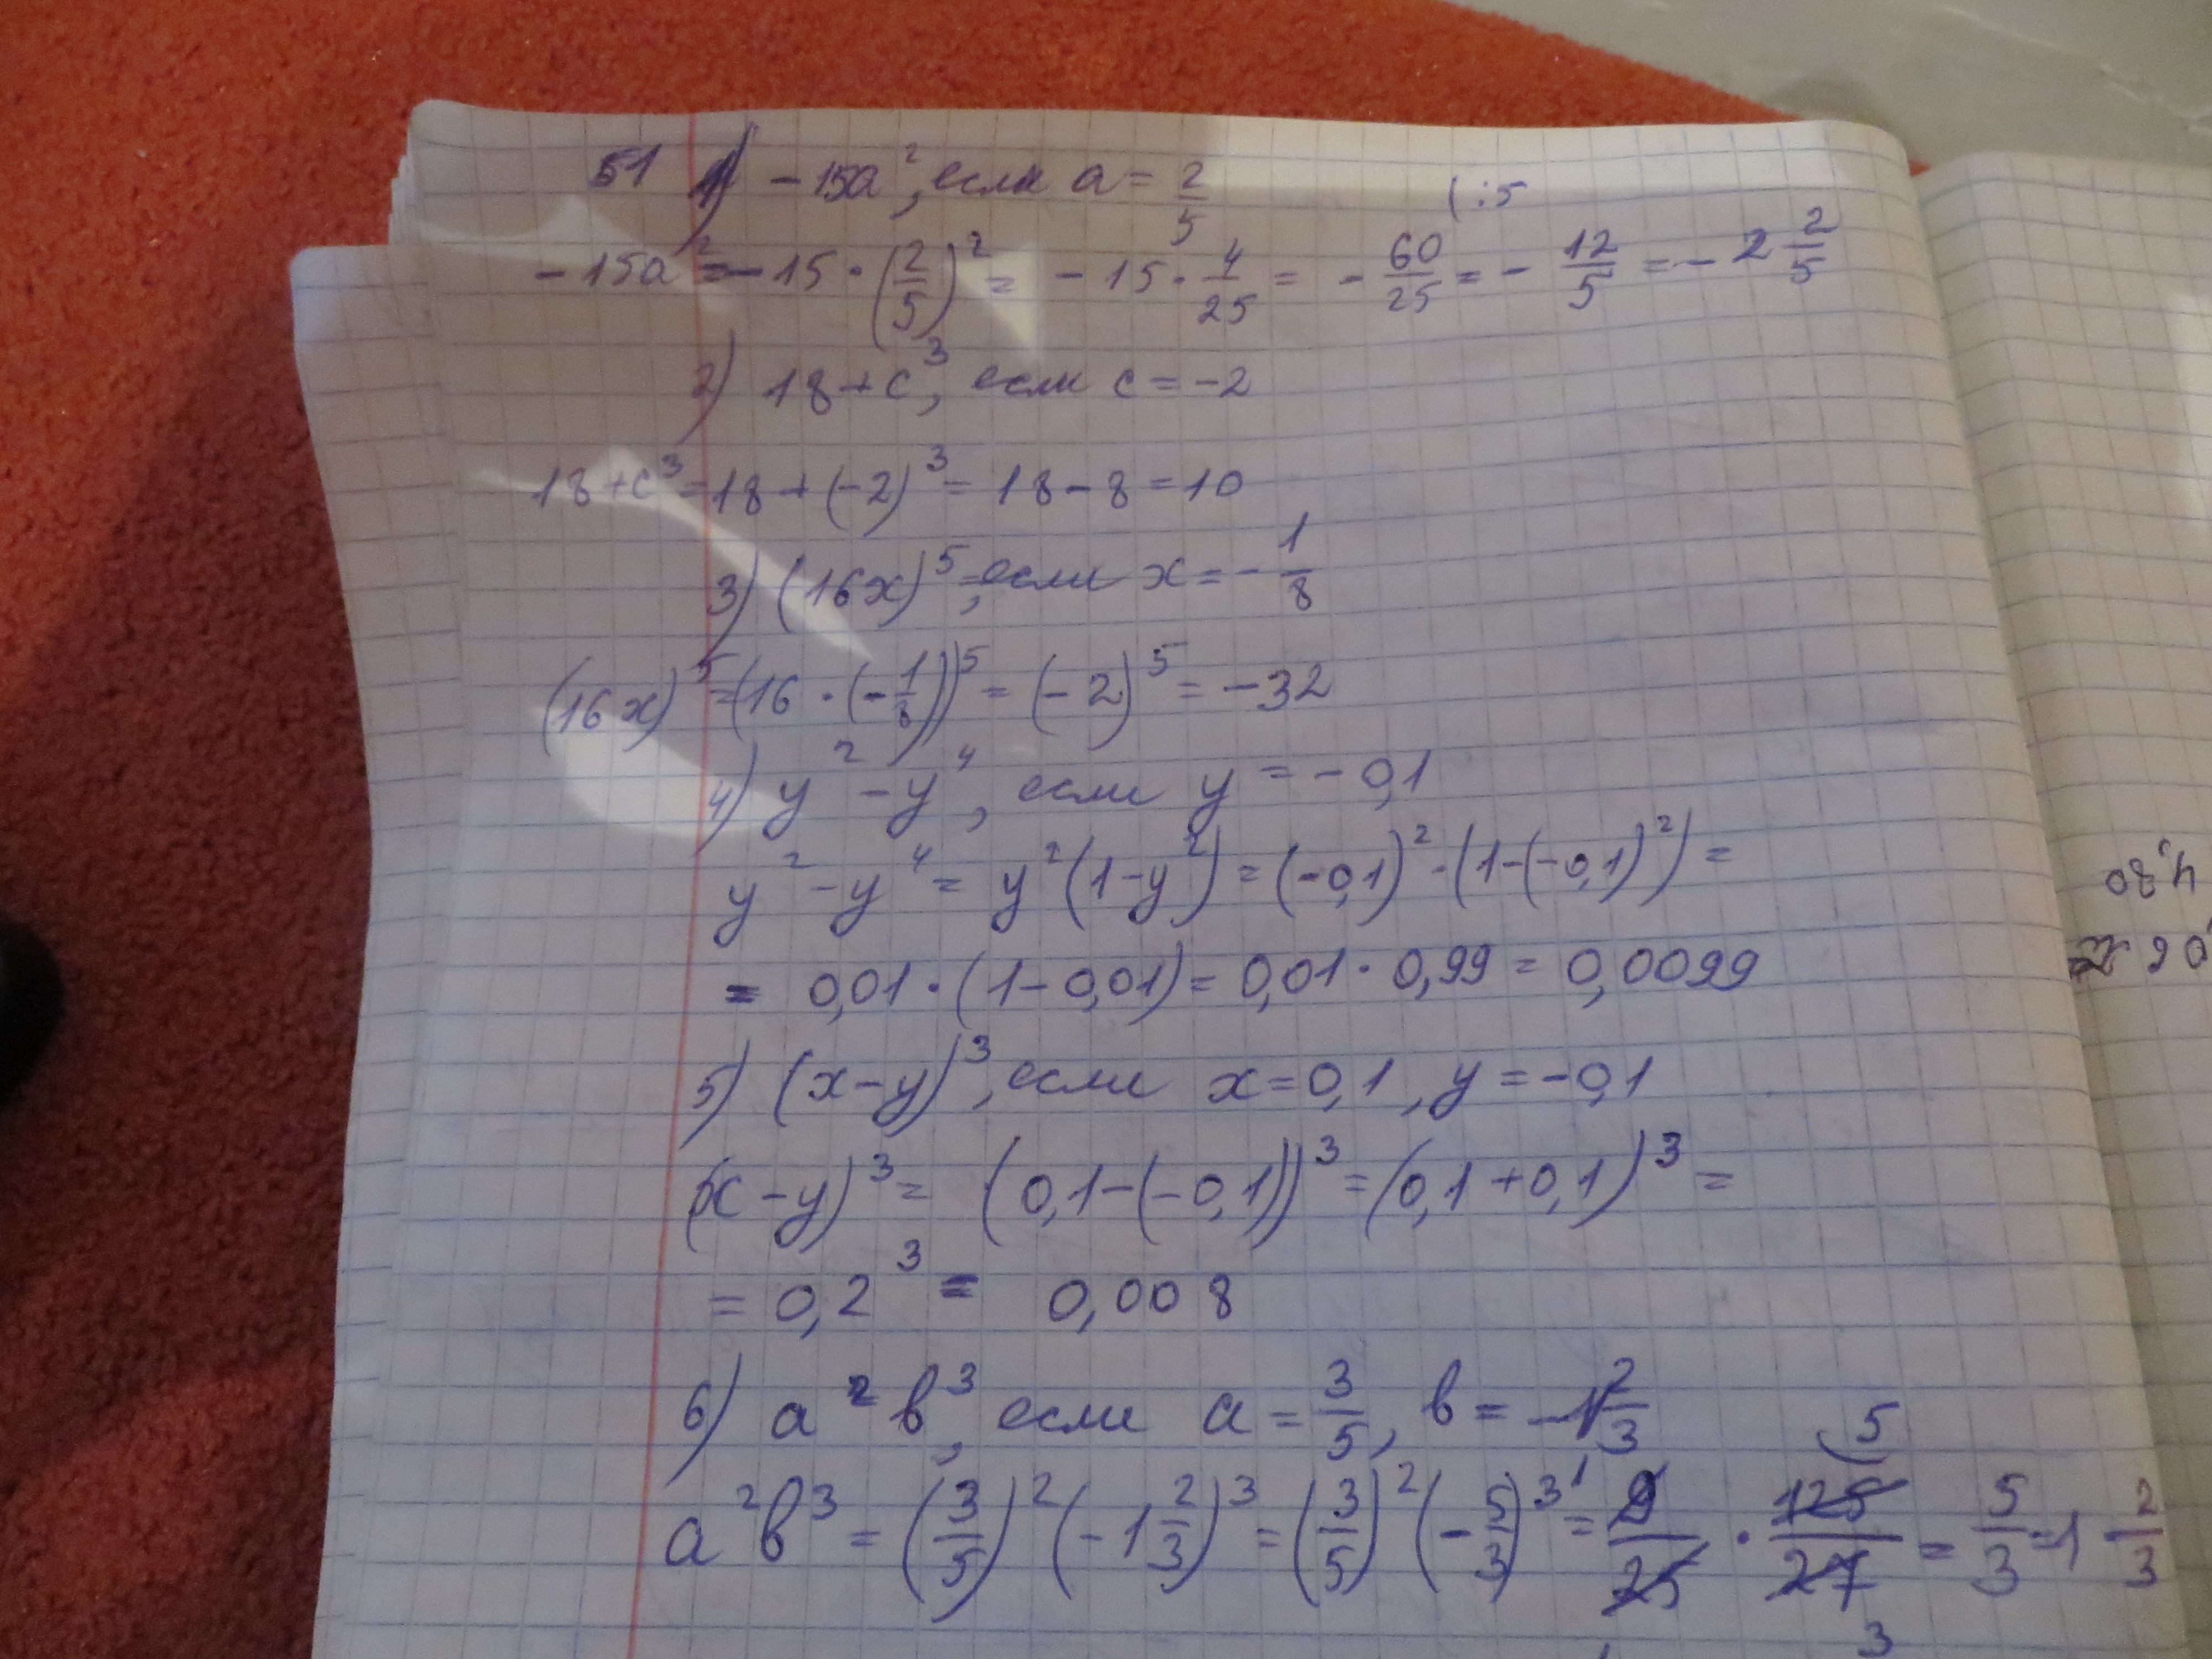 51 1) -15a², если a = 2/5
(:5
-15a² = -15 · (2/5)² = -15 · 4/25 = -60/25 = -12/5 = -2 2/5
2) 18+c³, если c = -2
18+c³ = 18+(-2)³ = 18-8 = 10
3) (16x)⁵, если x = -1/8
(16x)⁵ = (16·(-1/8))⁵ = (-2)⁵ = -32
4) y² - y⁴, если y = -0,1
y² - y⁴ = y²(1-y²) = (-0,1)² · (1-(-0,1)²) =
= 0,01 · (1-0,01) = 0,01 · 0,99 = 0,0099
5) (x-y)³, если x=0,1, y=-0,1
(x-y)³ = (0,1-(-0,1))³ = (0,1+0,1)³ =
= 0,2³ = 0,008
6) a²b³, если a = 3/5, b = -1 2/3
5
a²b³ = (3/5)² (-1 2/3)³ = (3/5)² (-5/3)³ = 9/25 · 125/27 = 5/3 = 1 2/3
1
3